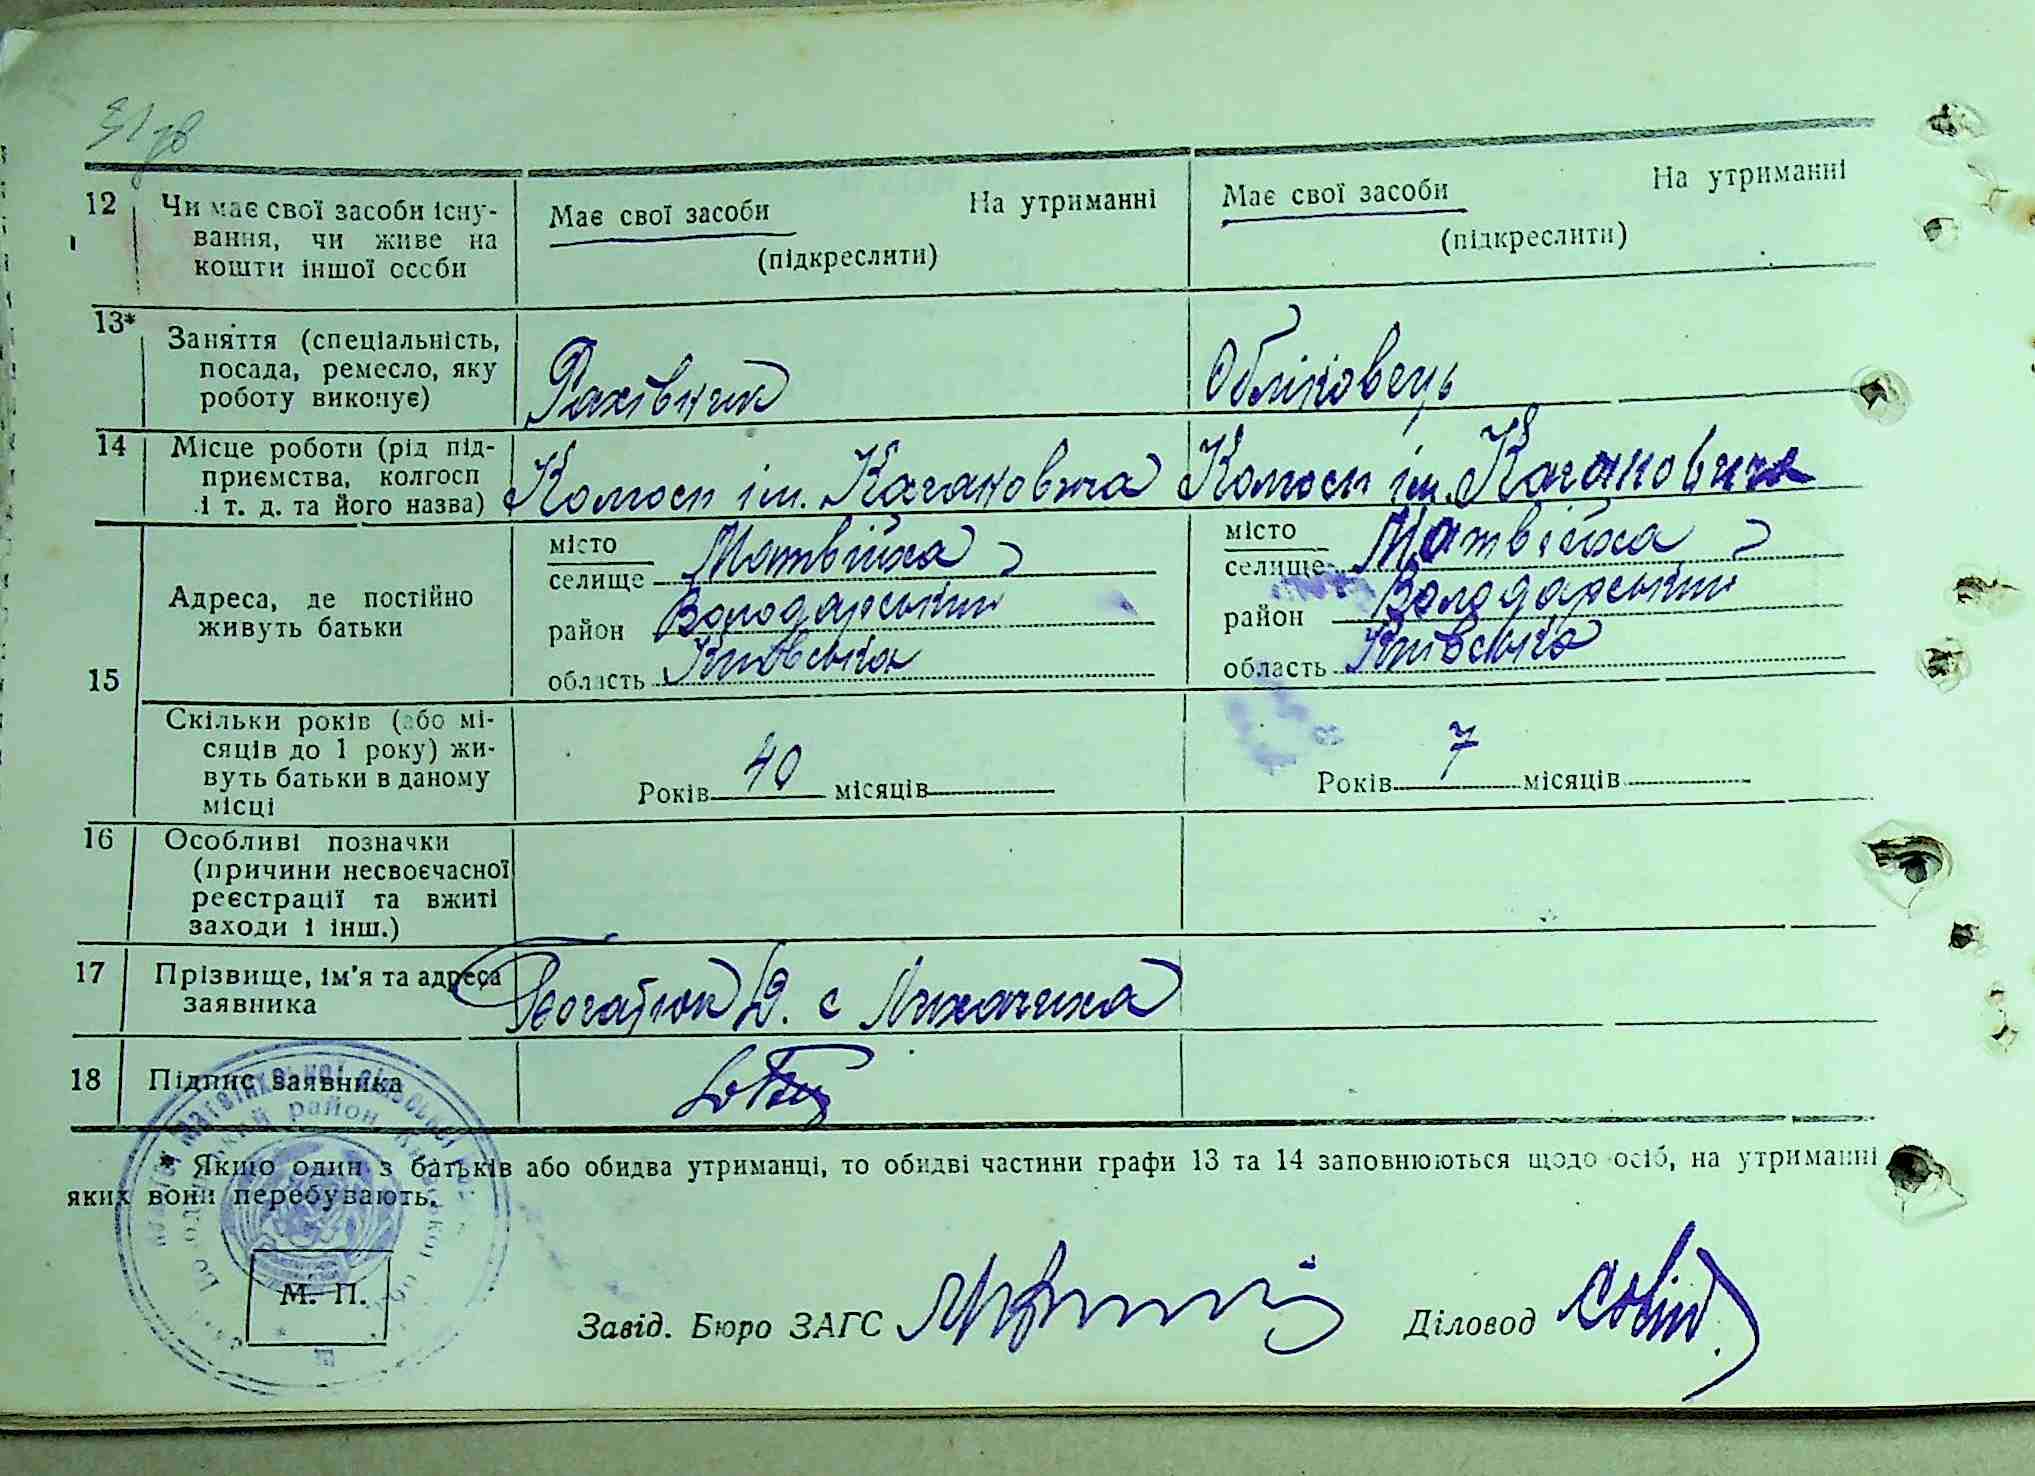 31 зв
12 Чи має свої засоби існу-
вання, чи живе на
кошти іншої особи
Має свої засоби На утриманні
(підкреслити)
Має свої засоби На утриманні
(підкреслити)
13* Заняття (спеціальність,
посада, ремесло, яку
роботу виконує)
Рахівник
Обліковець
14 Місце роботи (рід під-
приємства, колгосп
і т. д. та його назва)
Колгосп ім. Кагановича
Колгосп ім. Кагановича
15 Адреса, де постійно
живуть батьки
місто
селище Матвійха
район Володарський
область Київська
місто
селище Матвійха
район Володарський
область Київська
Скільки років (або мі-
сяців до 1 року) жи-
вуть батьки в даному
місці
Років 40 місяців
Років 7 місяців
16 Особливі позначки
(причини несвоєчасної
реєстрації та вжиті
заходи і інш.)
17 Прізвище, ім'я та адреса
заявника
Д. с
18 Підпис заявника
* Якщо один з батьків або обидва утриманці, то обидві частини графи 13 та 14 заповнюються щодо осіб, на утриманні
яких вони перебувають.
М. П.
Завід. Бюро ЗАГС
Діловод